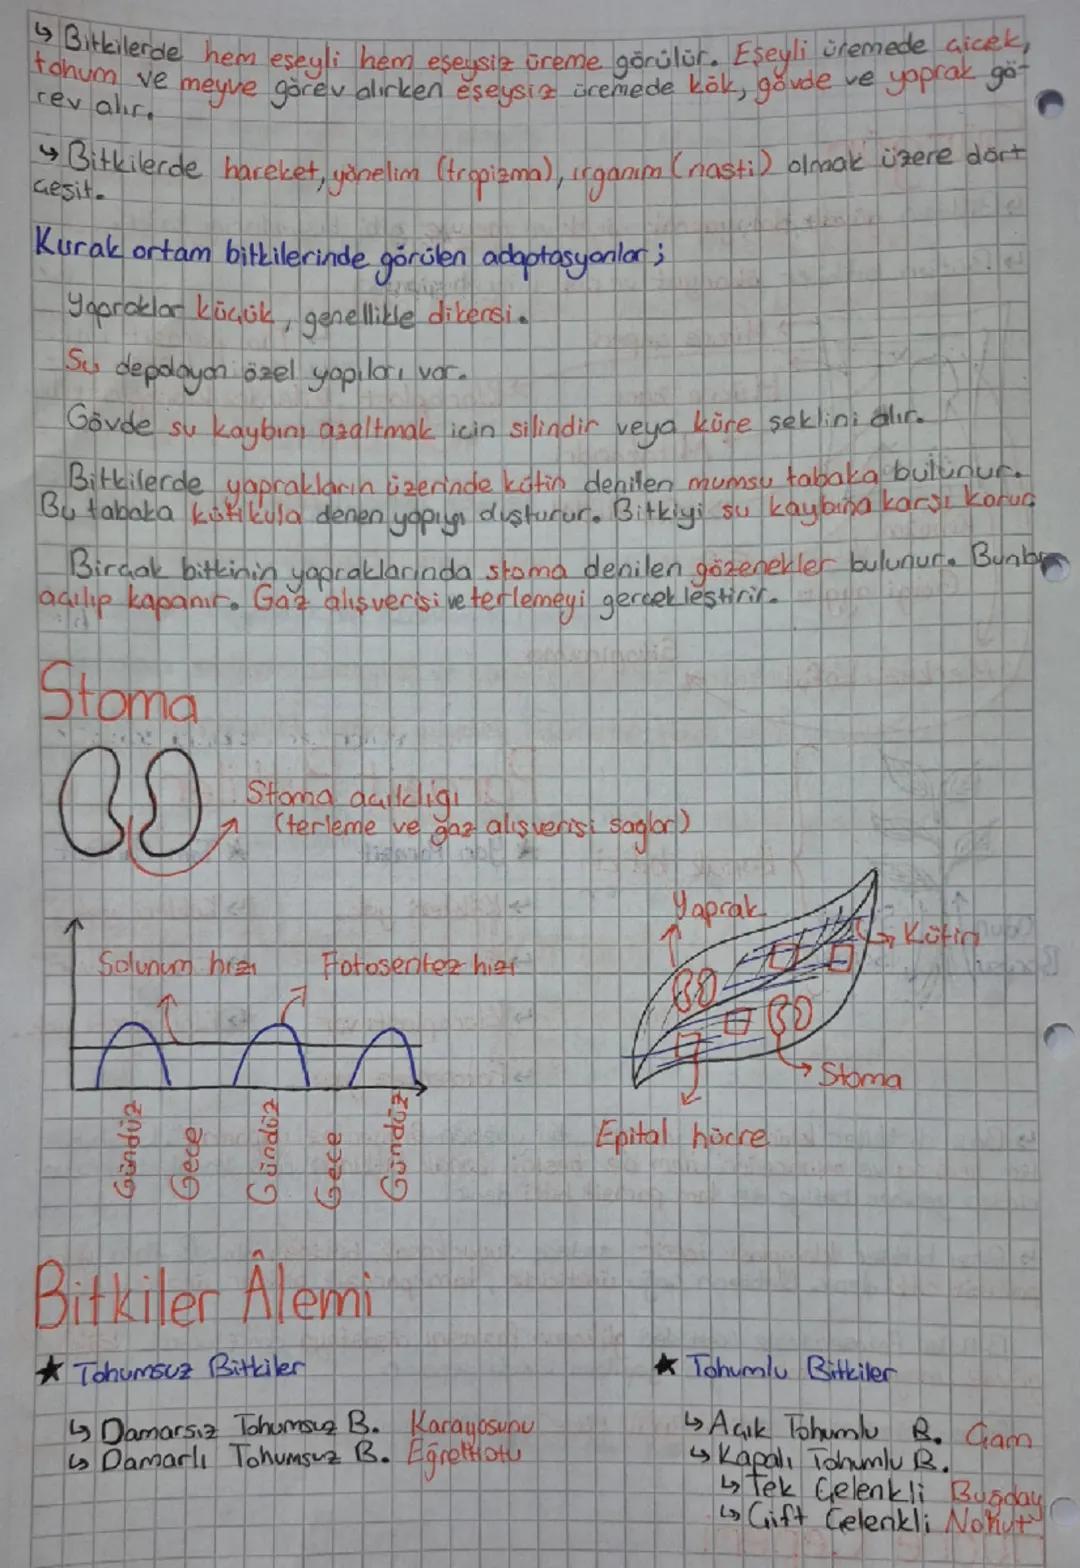 ↳ Bitkilerde hem eşeyli hem eşeysiz üreme görülür. Eşeyli üremede çiçek,
tohum ve meyve görev alırken eşeysiz üremede kök, gövde ve yaprak gö-
rev alır.
↳ Bitkilerde hareket, yönelim (tropizma), ırganım (nasti) olmak üzere dört
çeşit.
Kurak ortam bitkilerinde görülen adaptasyonlar;
Yapraklar küçük, genellikle dikensi.
Su depolayan özel yapıları var.
Gövde su kaybını azaltmak için silindir veya küre şeklini alır.
Bitkilerde yaprakların üzerinde kütin denilen mumsu tabaka bulunur.
Bu tabaka kütikula denen yapıyı oluşturur. Bitkiyi su kaybına karşı korur.
Birçok bitkinin yapraklarında stoma denilen gözenekler bulunur. Bunlar
açılıp kapanır. Gaz alışverişi ve terlemeyi gerçekleştirir.
Stoma
Stoma açıklığı
(terleme ve gaz alışverişi sağlar)
Yaprak
Kütin
Solunum hızı
Fotosentez hızı
Stoma
Gündüz
Gece
Gündüz
Gece
Gündüz
Epital hücre
Bitkiler Âlemi
★ Tohumsuz Bitkiler
★ Tohumlu Bitkiler
↳ Damarsız Tohumsuz B. Karayosunu
↳ Damarlı Tohumsuz B. Eğreltiotu
↳ Açık Tohumlu B. Çam
↳ Kapalı Tohumlu B.
↳ Tek Çelenkli Buğday
↳ Çift Çelenkli Nohut